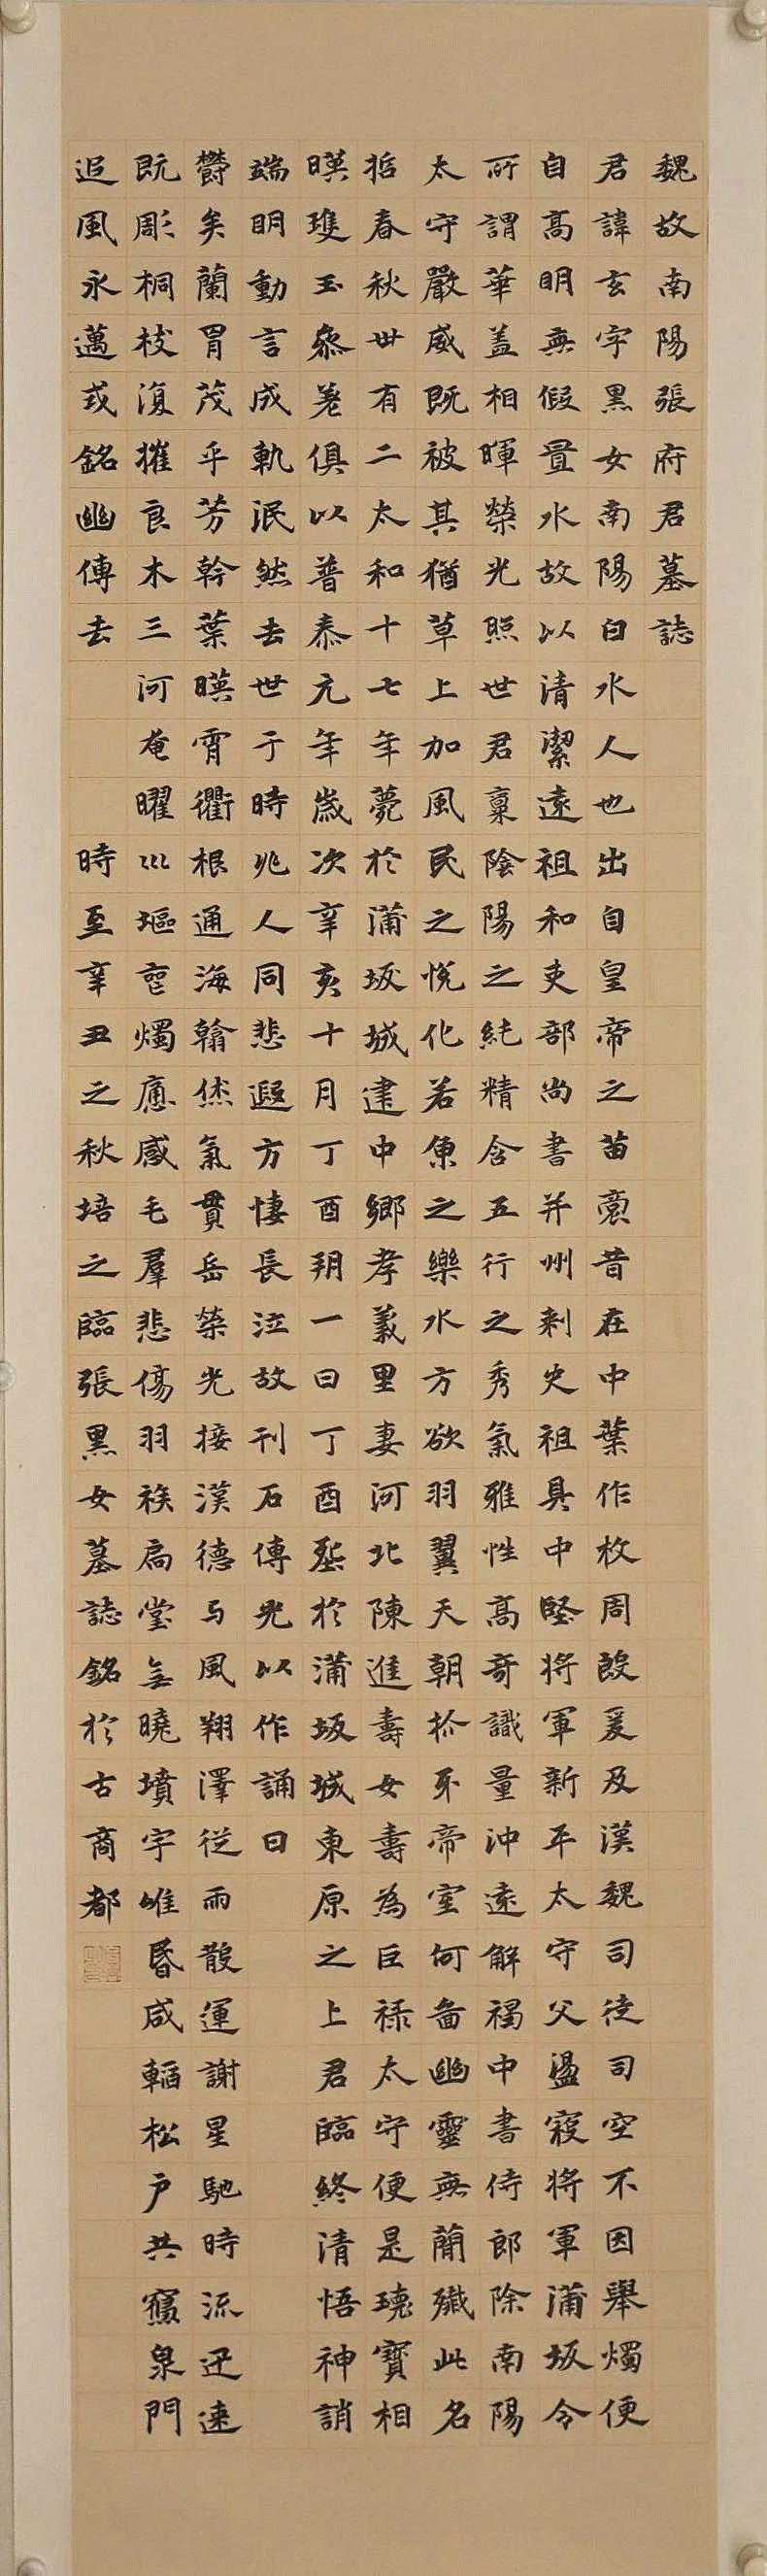 魏故南陽張府君墓誌
君諱玄字黑女南陽白水人也出自皇帝之苗裔昔在中葉作牧周殷爰及漢魏司徒司空不因舉燭便
自高明無假置水故以清潔遠祖和吏部尚書并州刺史祖具中堅將軍新平太守父盪寇將軍蒲坂令
所謂華蓋相暉榮光照世君稟陰陽之純精含五行之秀氣雅性高奇識量沖遠解褐中書侍郎除南陽
太守嚴威既被其猶草上加風民之悅化若魚之樂水方欲羽翼天朝抓牙帝室何啚幽靈無簡殲此名
哲春秋卅有二太和十七年薨於蒲坂城建中鄉孝義里妻河北陳進壽女壽為巨祿太守便是瓌寶相
暎瓊玉參差俱以普泰元年歲次辛亥十月丁酉朔一日丁酉塟於蒲坂城東原之上君臨終清悟神誚
端明動言成軌泯然去世于時兆人同悲遐方悽長泣故刊石傳光以作誦曰
鬱矣蘭冑茂乎芳幹葉暎霄衢根通海翰烋氣貫岳榮光接漢德与風翔澤從雨散運謝星馳時流迅速
既彫桐枝復摧良木三河奄曜川塸寍燭廕感毛羣悲傷羽族扃堂無曉墳宇唯昏咸韜松户共寱泉門
追風永邁式銘幽傳去 時至辛丑之秋培之臨張黑女墓誌銘於古商都